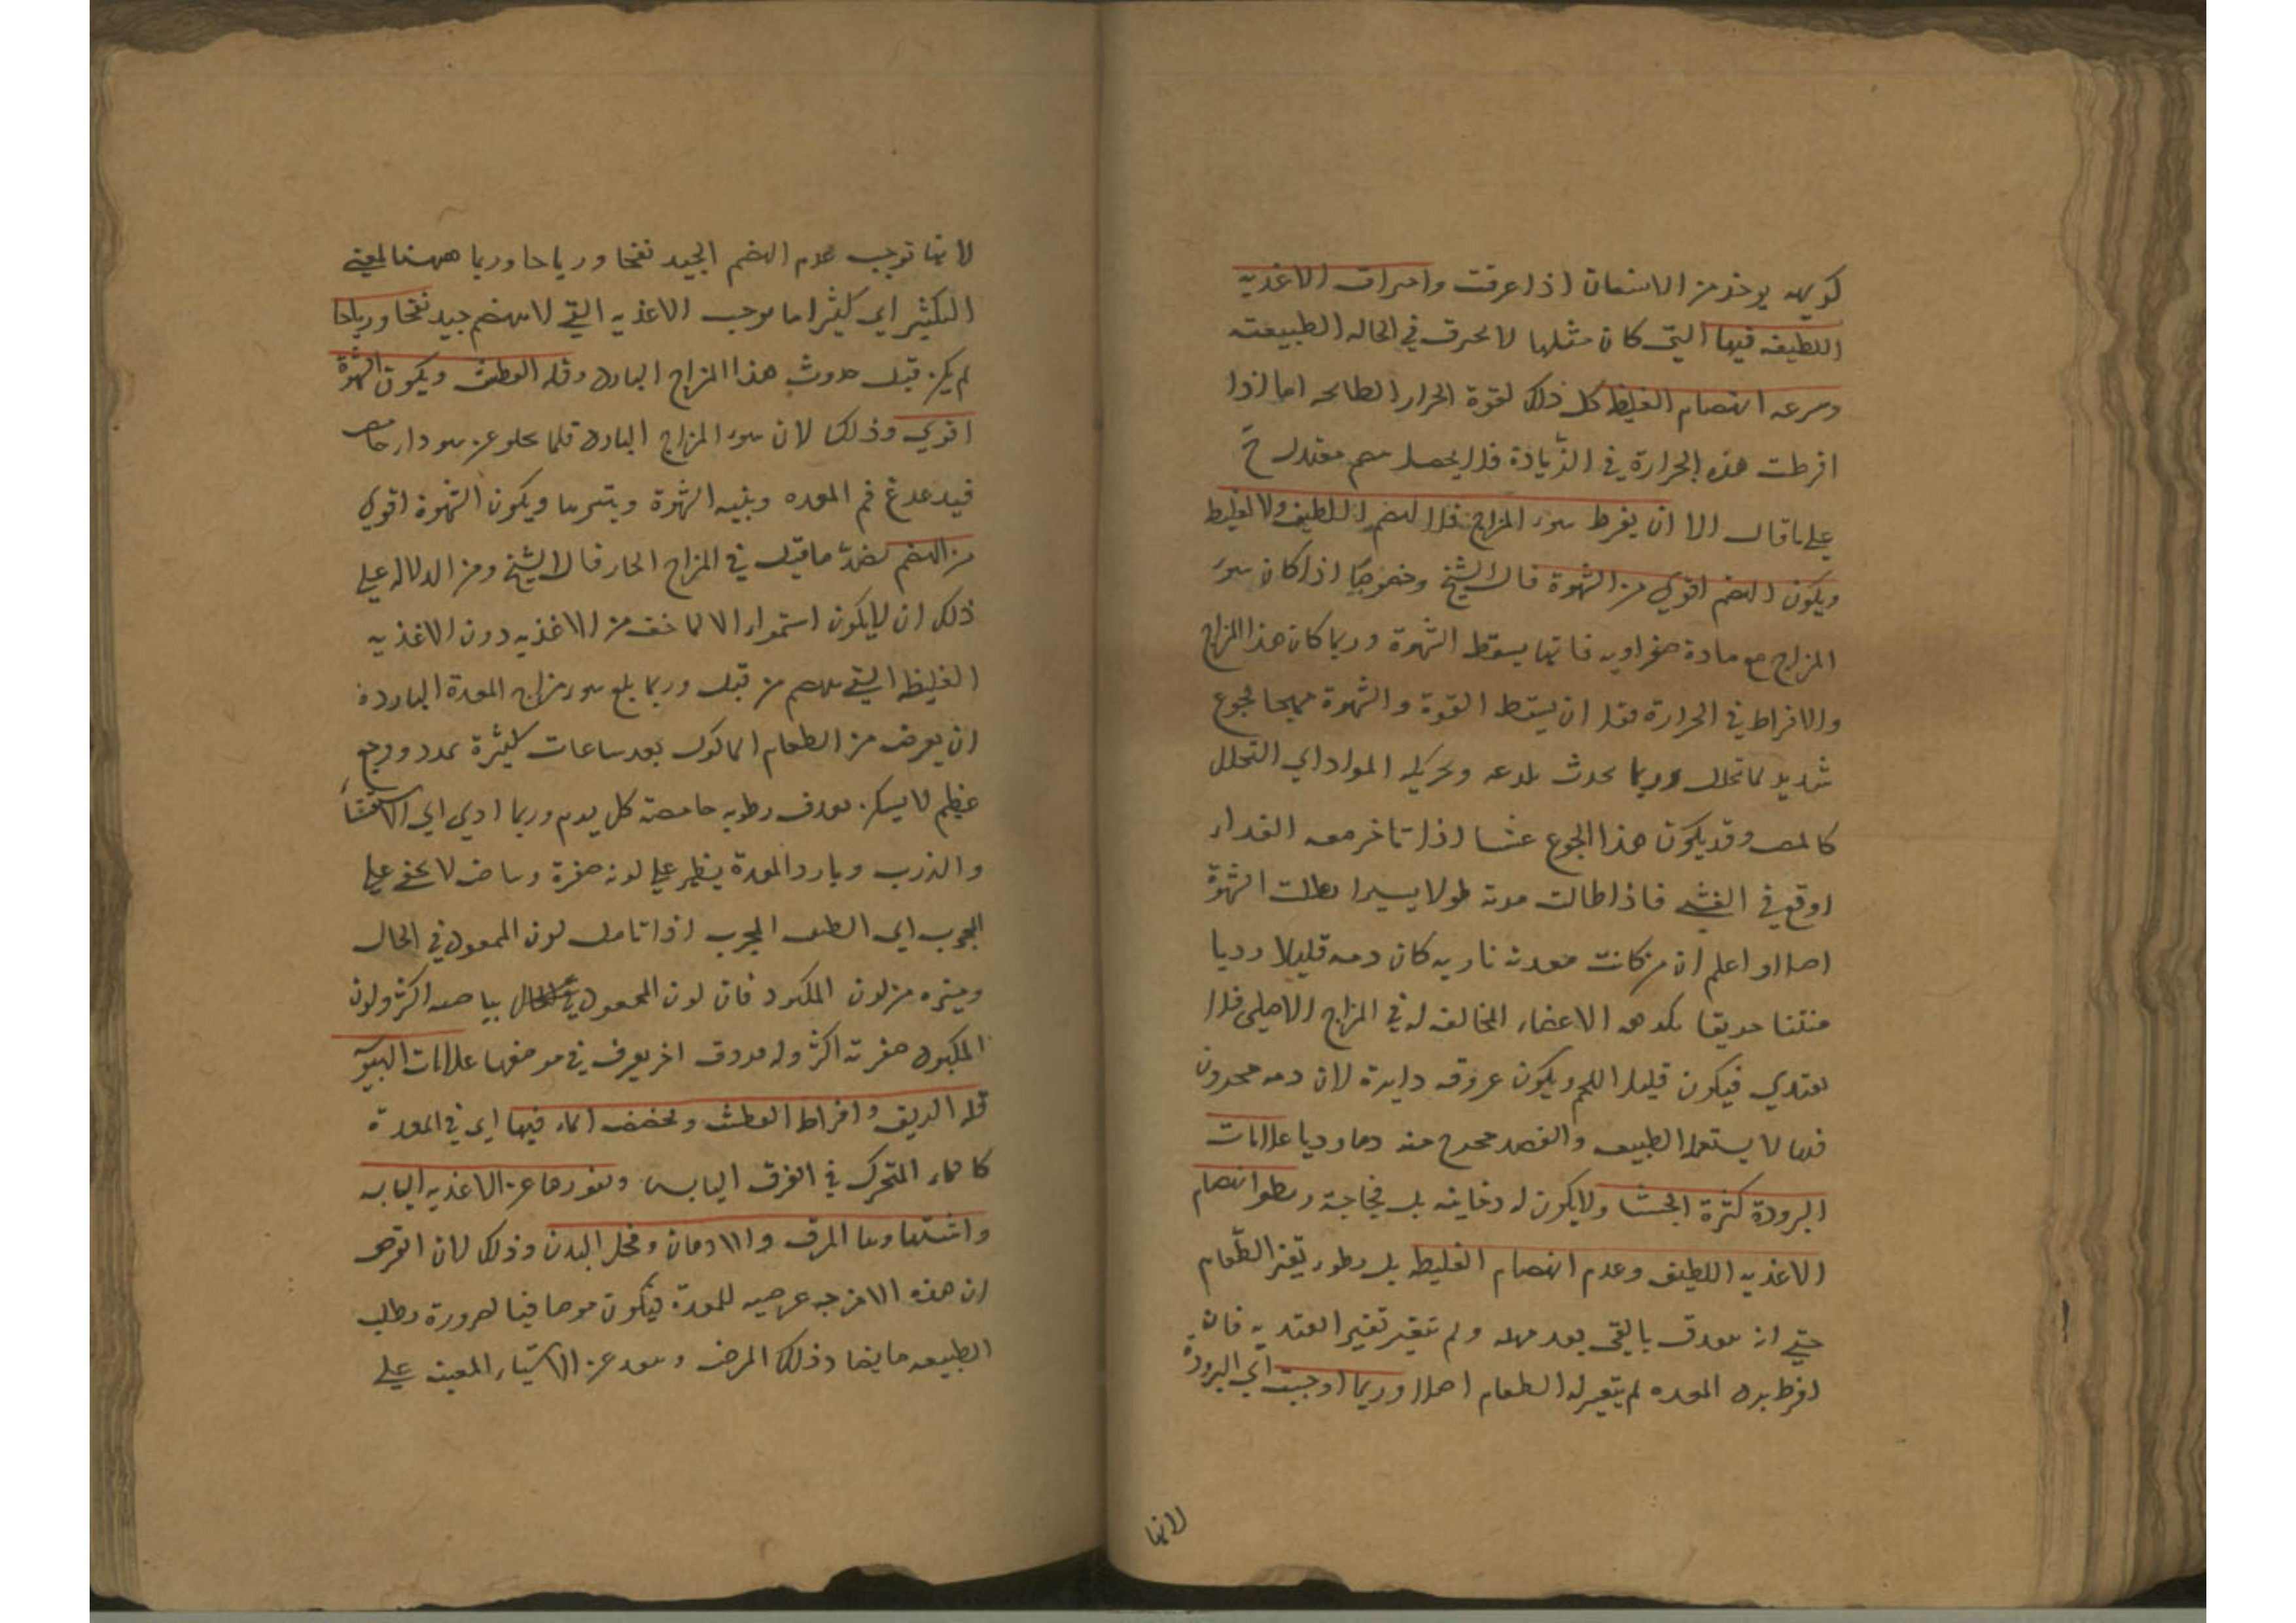 كريهه يوخذ من الانتفان اذا عرفت واحراق الاغذيه
اللطيفه فيها التي كان مثلها لا يحرق في الحاله الطبيعته
وسرعه انهضام الغليظ كل ذلك لقوة الحرار الطابخه اما اذا
افرطت هذه الحرارة في الزيادة فلا يحصل هضم معتدل ح
علي ما قال الا ان يفرط سوء المزاج فلا الهضم اللطيف ولا الغليظ
ويكون الهضم اقوي من الشهوة قال الشيخ وخصوصا اذا كان سوء
المزاج مع مادة صفراويه فانها يسقط الشهوة وربما كان هذا المزاج
والافراط في الحرارة فقد ان يسقط القوة والشهوة مهيجا لجوع
شديد لما تحلل وربما يحدث بلدغه وتحريكه المواد اي التحلل
كالمص وقد يكون هذا الجوع غشيا اذا تاخر معه الغداء
اوقع في الغشي فاذا طالت مدته طولا يسيرا بطلت الشهوة
اصلا واعلم ان من كانت معدته ناريه كان دمه قليلا رديا
منتنا حريفا يكرهه الاعضاء المخالفه له في المزاج الاصلي فلا
يغتدي فيكون قليل اللحم ويكون عروقه دارة لان دمه مخزون
فيها لا يستعمله الطبيعه والفصد يخرج منه دما رديا علامات
البرودة كثرة الجشا ولا يكون له دخانيه بل فجاجة وبطو انهضام
الاغذيه اللطيفه وعدم انهضام الغليظه بل بطور تغير الطعام
حتي انه يقذف بالقي بعد مهله ولم يتغير تغيرا يعتد به فان
افرط برد المعده لم يتغير له الطعام اصلا وربما اوجبت اي البرودة
لانها
لانها توجب عدم الهضم الجيد نفخا ورياحا وربما ههنا لمعني
التكثير اي كثيرا ما يوجب الاغذيه التي لا يهضم جيد نفخا ورياحا
لم يكن قبل حدوث هذا المزاج البارد وقله العطش ويكون الشهوة
اقوي وذلك لان سوء المزاج البارد قلما يخلو عن سوداء حامض
فيدغدغ فم المعده وينبه الشهوة ويثيرها ويكون الشهوة اقوي
من الهضم لضد ما قيل في المزاج الحار قال الشيخ ومن الدلاله علي
ذلك ان لا يكون استمراء الا لما خف من الاغذيه دون الاغذيه
الغليظه التي يهضم من قبل وربما بلغ سوء مزاج المعدة الباردة
ان يعرض من الطعام الماكول بعد ساعات كثيرة تمدد ووجع
عظيم لا يسكن بقذف رطوبه حامضة كل يوم وربما ادي الي الاستسقا
والذرب وبارد المعدة يظهر علي لونه صفرة وبياض لا يخفي علي
المجرب اي الطبيب المجرب اذا تامل لون الممعود في الحال
وميزه من لون المكبود فان لون الممعود في الحال بياضه اكثر ولون
المكبود صفرته اكثر وله فروق اخر يعرف في موضعها علامات اليبوسة
قله الريق وافراط العطش وتخضخض الماء فيها اي في المعدة
كالماء المتحرك في الزق اليابس ونفورها عن الاغذيه اليابسه
واشتهاوها المرق والادهان ونحل البدن وذلك لان الفرض
ان هذه الامزجه عرضيه للمعدة فيكون مرضا فيها لضرورة وطلب
الطبيعه ما يضاد ذلك المرض وبعد عن الاشياء المعينه علي